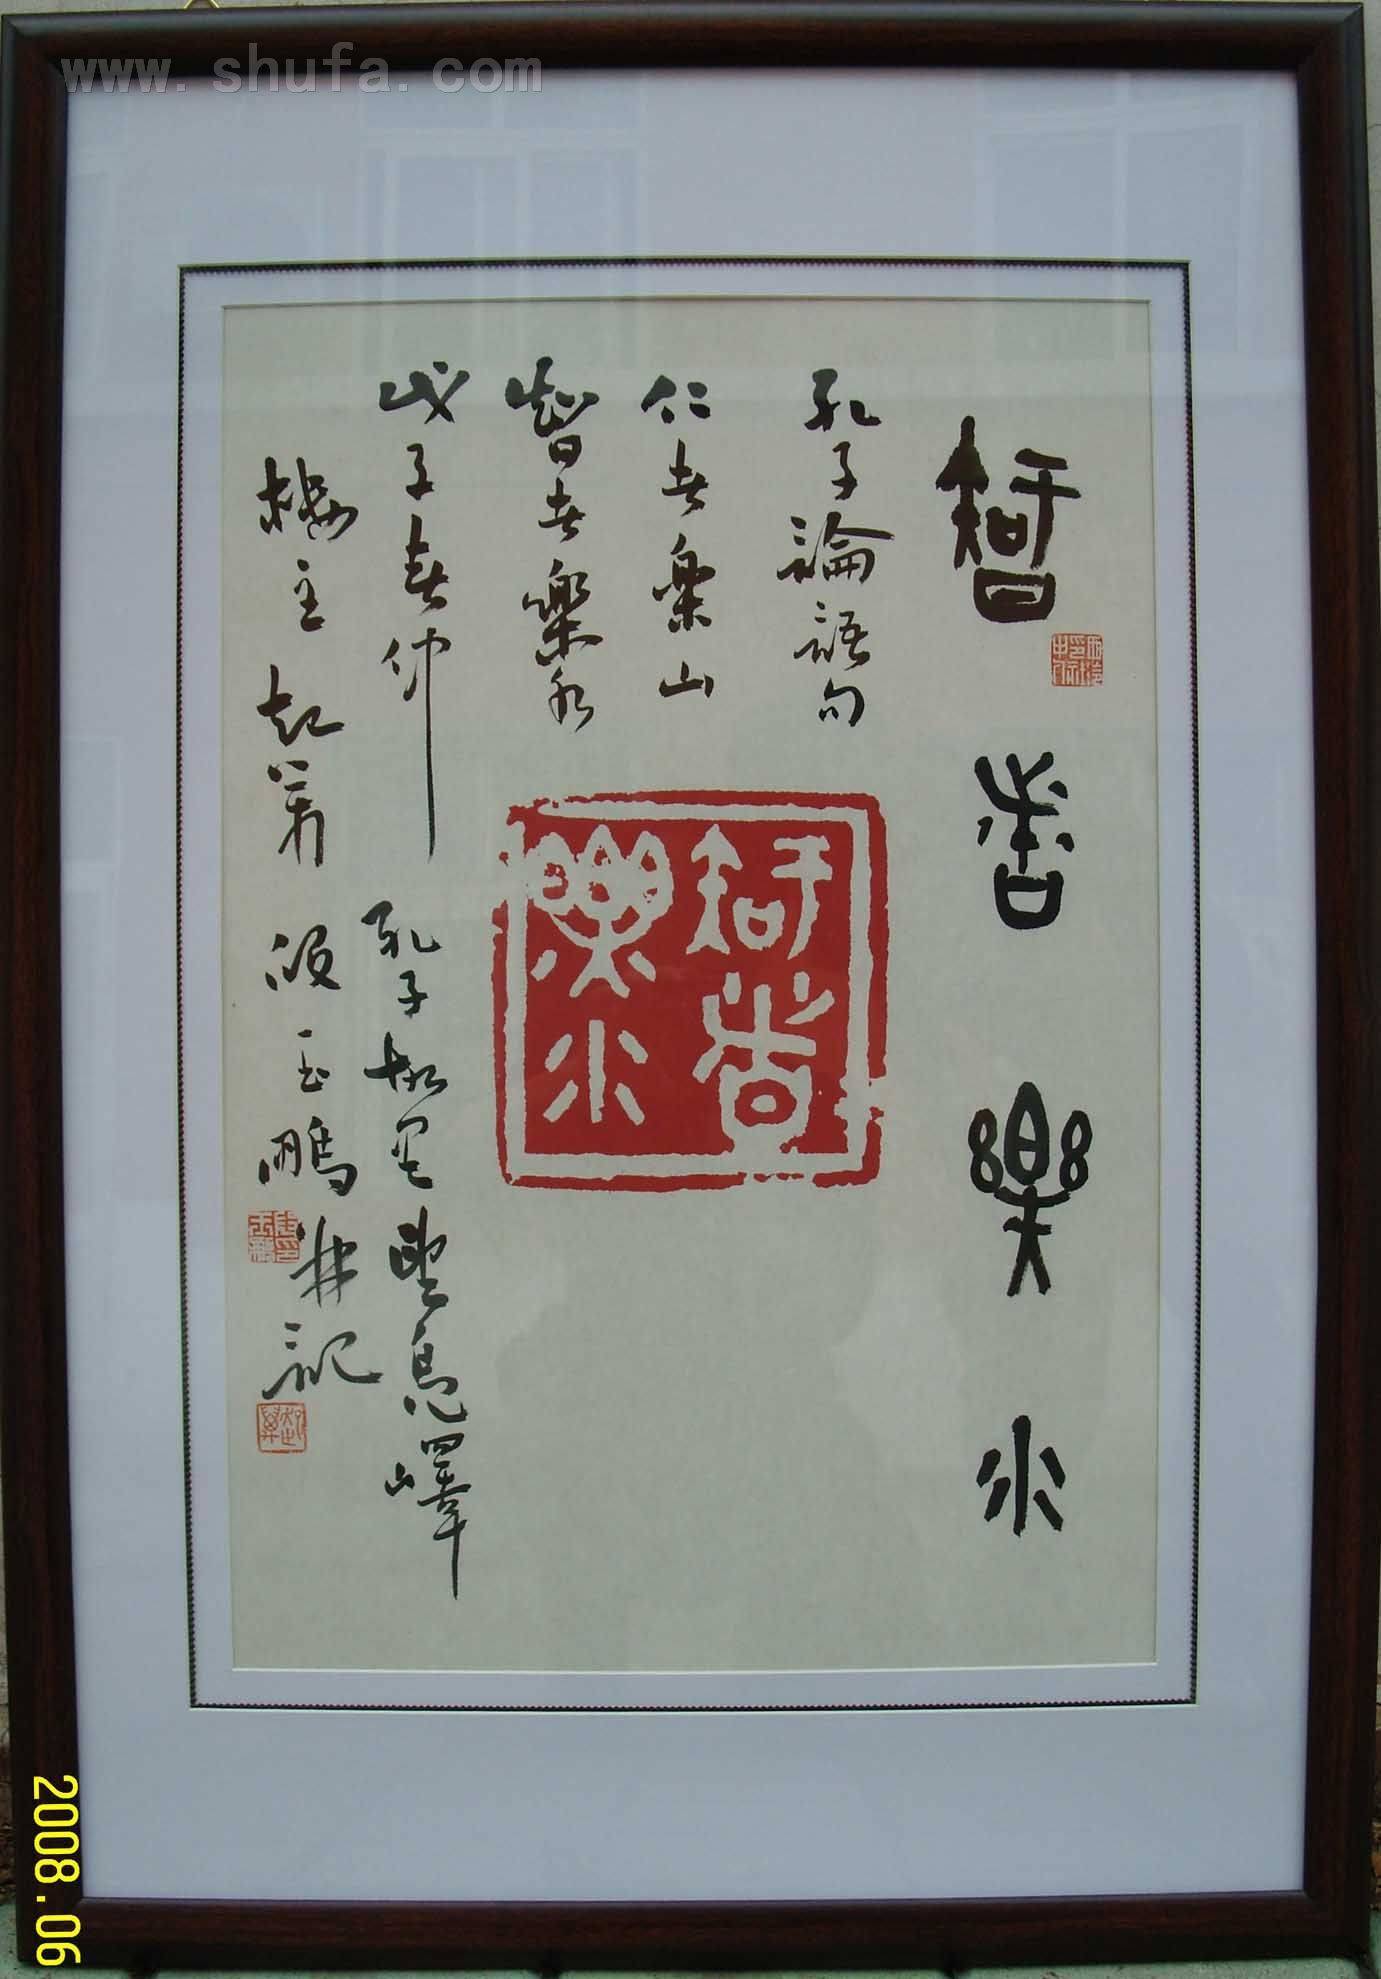 www.shufa.com
智者樂水
孔子論語句
仁者樂山
智者樂水
戊子春仲 孔子故里 望鳧嶧
樓主 段玉鵬 并記
智者樂水
2008.06